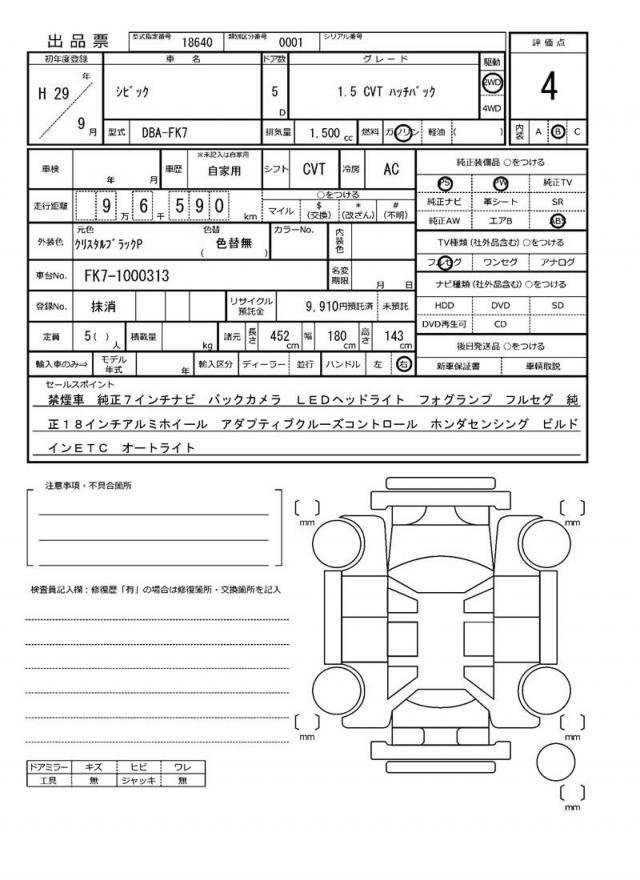 出品票 型式指定番号 18640 類別区分番号 0001 シリアル番号
初年度登録 車名 ドア数 グレード 駆動 評価点
H 29 年 9 月 シビック 5 D 1.5 CVT ハッチバック 2WD 4WD 4
型式 DBA-FK7 排気量 1.500 cc 燃料 ガソリン 軽油 ( ) 内装 A B C
車検 年 月 車歴 ※未記入は自家用 自家用 シフト CVT 冷房 AC 純正装備品 ○をつける
PS PW 純正TV
走行距離 9 万 6 千 590 km ○をつける
マイル $ (交換) * (改ざん) # (不明)
純正ナビ 革シート SR
純正AW エアB ABS
外装色 元色 クリスタルブラックP 色替 ( 色替無 ) カラーNo. 内装色
TV種類(社外品含む)○をつける
フルセグ ワンセグ アナログ
車台No. FK7-1000313 名変期限 月 日
ナビ種類(社外品含む)○をつける
登録No. 抹消 リサイクル預託金 9,910円預託済 未預託
HDD DVD SD
DVD再生可 CD
定員 5( ) 人 積載量 kg 諸元 長さ 452 cm 幅 180 cm 高さ 143 cm
後日発送品 ○をつける
輸入車のみ⇒ モデル年式 年 輸入区分 ディーラー 並行 ハンドル 左 右 新車保証書 車輌取説
セールスポイント
禁煙車 純正7インチナビ バックカメラ LEDヘッドライト フォグランプ フルセグ 純
正18インチアルミホイール アダプティブクルーズコントロール ホンダセンシング ビルド
インETC オートライト
注意事項・不具合箇所
mm
mm
検査員記入欄：修復歴「有」の場合は修復箇所・交換箇所を記入
mm
mm
ドアミラー キズ ヒビ ワレ
工具 無 ジャッキ 無
mm